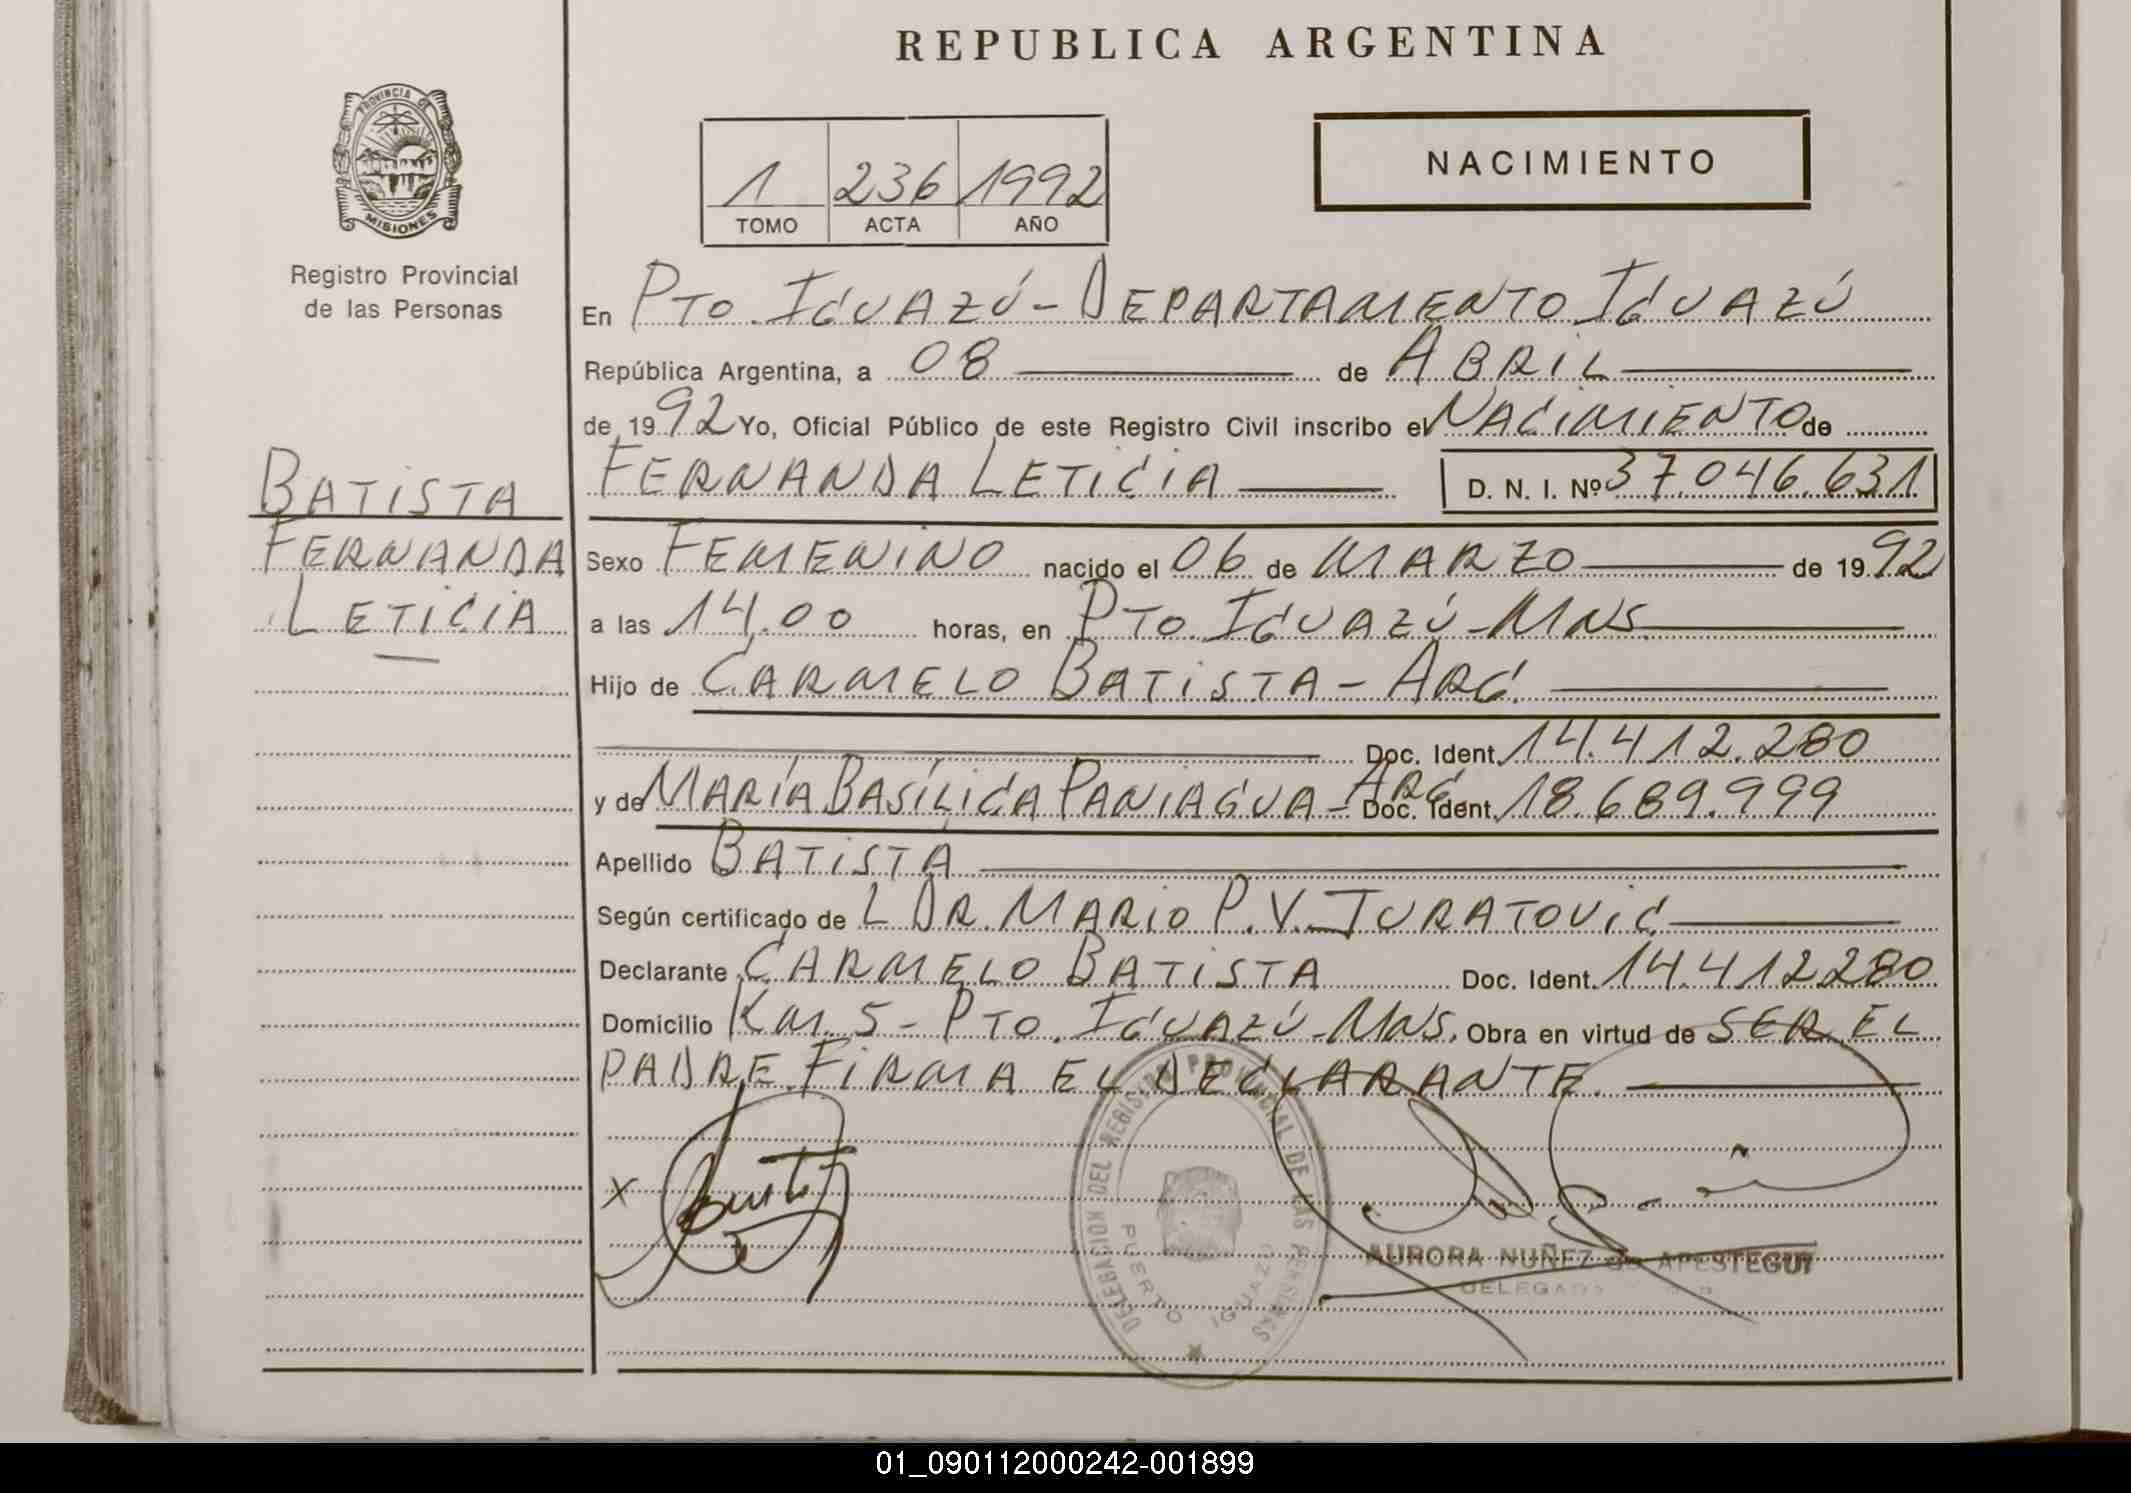 REPUBLICA ARGENTINA
PROVINCIA DE
MISIONES
Registro Provincial
de las Personas
1 236 1992
TOMO ACTA AÑO
NACIMIENTO
En PTO. IGUAZÚ - DEPARTAMENTO IGUAZÚ
República Argentina, a 08 de ABRIL
de 1992 Yo, Oficial Público de este Registro Civil inscribo el NACIMIENTO de
FERNANDA LETICIA D. N. I. Nº 37.046.631
BATISTA
FERNANDA
LETICIA
Sexo FEMENINO nacido el 06 de MARZO de 1992
a las 14.00 horas, en PTO. IGUAZÚ - MNS.
Hijo de CARMELO BATISTA - ARG.
Doc. Ident. 14.412.280
y de MARÍA BASÍLICA PANIAGUA - ARG. Doc. Ident. 18.689.999
Apellido BATISTA
Según certificado de L DR. MARIO P. V. JURATOVIC
Declarante CARMELO BATISTA Doc. Ident. 14.412280
Domicilio KM. 5 - PTO. IGUAZÚ - MNS. Obra en virtud de SER EL
PADRE. FIRMA EL DECLARANTE.
X
DELEGACION DEL REGISTRO PROVINCIAL DE LAS PERSONAS
PUERTO IGUAZU
AURORA NUÑEZ de APESTEGUI
01_090112000242-001899